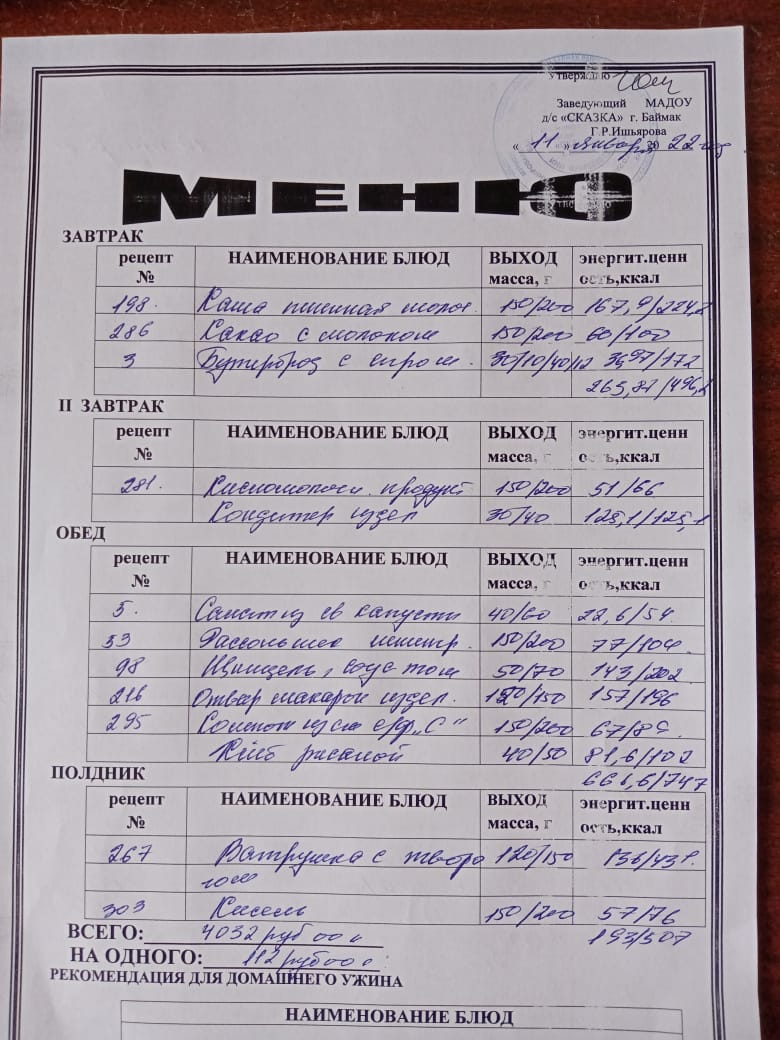 Утверждаю
Заведующий МАДОУ
д/с «СКАЗКА» г. Баймак
Г.Р.Ишьярова
« 11 » января 2022 год
МЕНЮ
ЗАВТРАК
рецепт № НАИМЕНОВАНИЕ БЛЮД ВЫХОД масса, г энергит.ценн ость,ккал
198. Каша пшенная молоч. 150/200 167,9/224,2
286 Какао с молоком 150/200 60/100
3 Бутерброд с сыром. 30/10/40/12 /172
/496,2
II ЗАВТРАК
рецепт № НАИМЕНОВАНИЕ БЛЮД ВЫХОД масса, г энергит.ценн ость,ккал
281. Кисломолочн. продукт 150/200 51/66
Кондитер издел 30/40 125,1/125,1
ОБЕД
рецепт № НАИМЕНОВАНИЕ БЛЮД ВЫХОД масса, г энергит.ценн ость,ккал
5. Салат из св капусты 40/60 22,6/54
53 Рассольник ленингр. 150/200 77/104
98 Шницель, соус том 50/70 143/202
216 Отвар макарон издел. 120/150 157/196
295 Компот из с/фр „С“ 150/200 67/89
Хлеб ржаной 40/50 81,6/102
/747
ПОЛДНИК
рецепт № НАИМЕНОВАНИЕ БЛЮД ВЫХОД масса, г энергит.ценн ость,ккал
267 Ватрушка с творо 120/150 136/431
гом
303 Кисель 150/200 57/76
193/507
ВСЕГО: 4032 руб 00 к
НА ОДНОГО: 112 руб 00 к
РЕКОМЕНДАЦИЯ ДЛЯ ДОМАШНЕГО УЖИНА
НАИМЕНОВАНИЕ БЛЮД